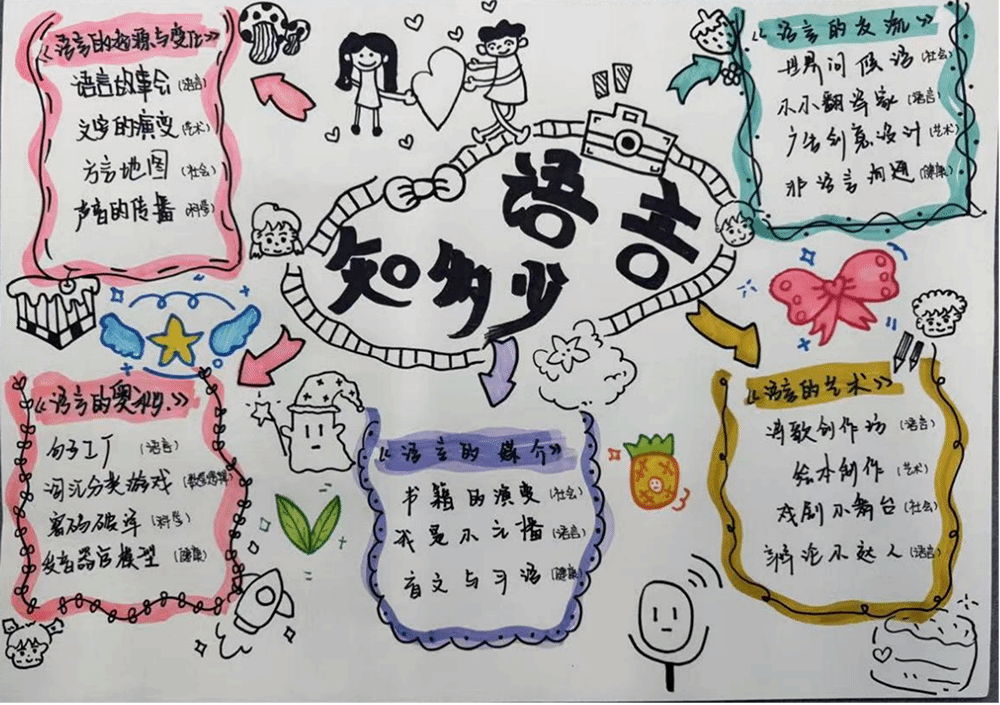 语言
知多少
《语言的起源与变化》
语言的 (语言)
文字的演变 (艺术)
方言地图 (社会)
声音的传播 (科学)
《语言的交流》
世界问候语 (社会)
小小翻译家 (语言)
广告创意设计 (艺术)
非语言沟通 (健康)
《语言的奥秘》
句子工厂 (语言)
词汇分类游戏
密码破译 (科学)
发音器官模型 (健康)
《语言的媒介》
书籍的演变 (社会)
我是小主播 (语言)
盲文与手语 (健康)
《语言的艺术》
诗歌创作坊 (语言)
绘本创作 (艺术)
戏剧小舞台 (社会)
辩论小达人 (语言)